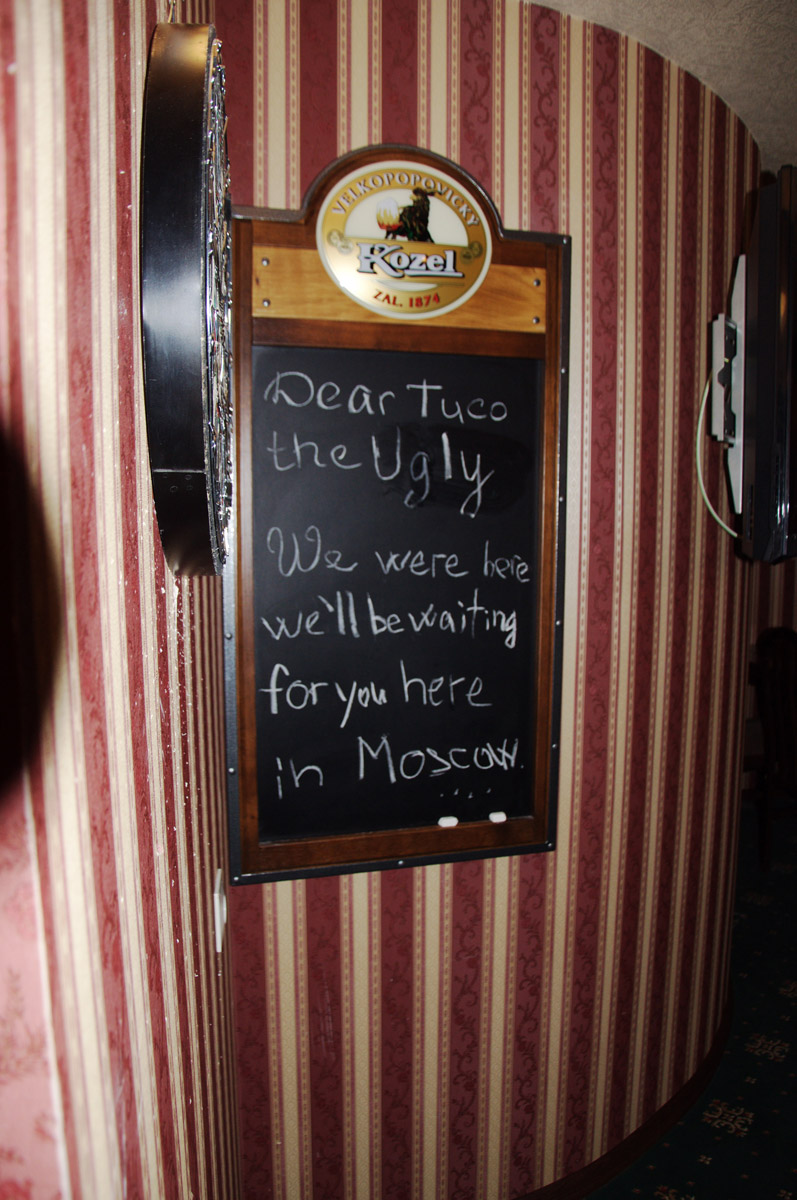 VELKOPOPOVICKÝ
Kozel
ZAL. 1874
Dear Tuco
the Ugly
We were here
we'll be waiting
for you here
in Moscow.
....